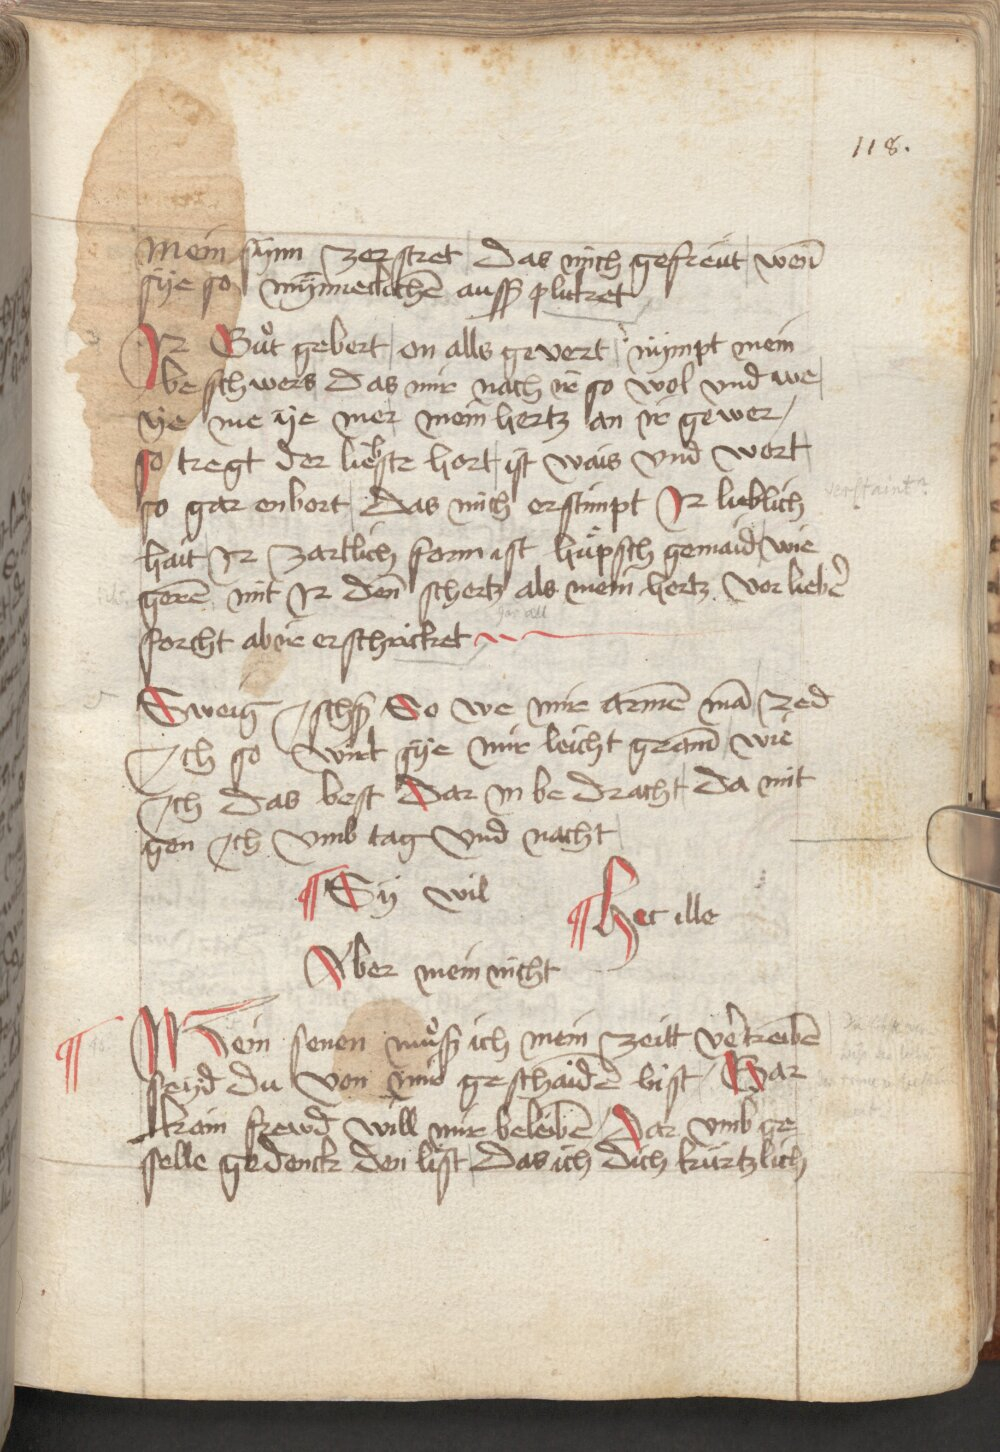 118.
Mein synn zerstret das mich gefreüt wen̄
sye so mÿnneclichē auſß plicket
Ir Gůt gebert on alls gevert nympt mein
beschwers das mir nach ir so wol vnd we
ye me ye mer mein hertz an ir gewer
so tregt der liebste hort ist wais vnd wort
so gar enbort das mich erstimpt Ir lieblich
hait Ir zartlich form ist hüpsch gemaid wie
gerē mit Ir den schertz als mein hertz vor liebē
forcht ab ir erschricket
Sweig Ich so we mir armē mā red
Ich so wirt sye mir leicht gram̄ wie
Ich das best dar in be dracht da mit
gen Ich vmb tag vnd nacht
Sy wil
Hec ille
Aber mein nicht
Mein senen můſß ich mein zeitt vertreibē
seyd du von mir geschaidē bist Gar
kain frewd will mir beleibē Dar vmb ge
selle gedenck den list das ich dich kürtzlich